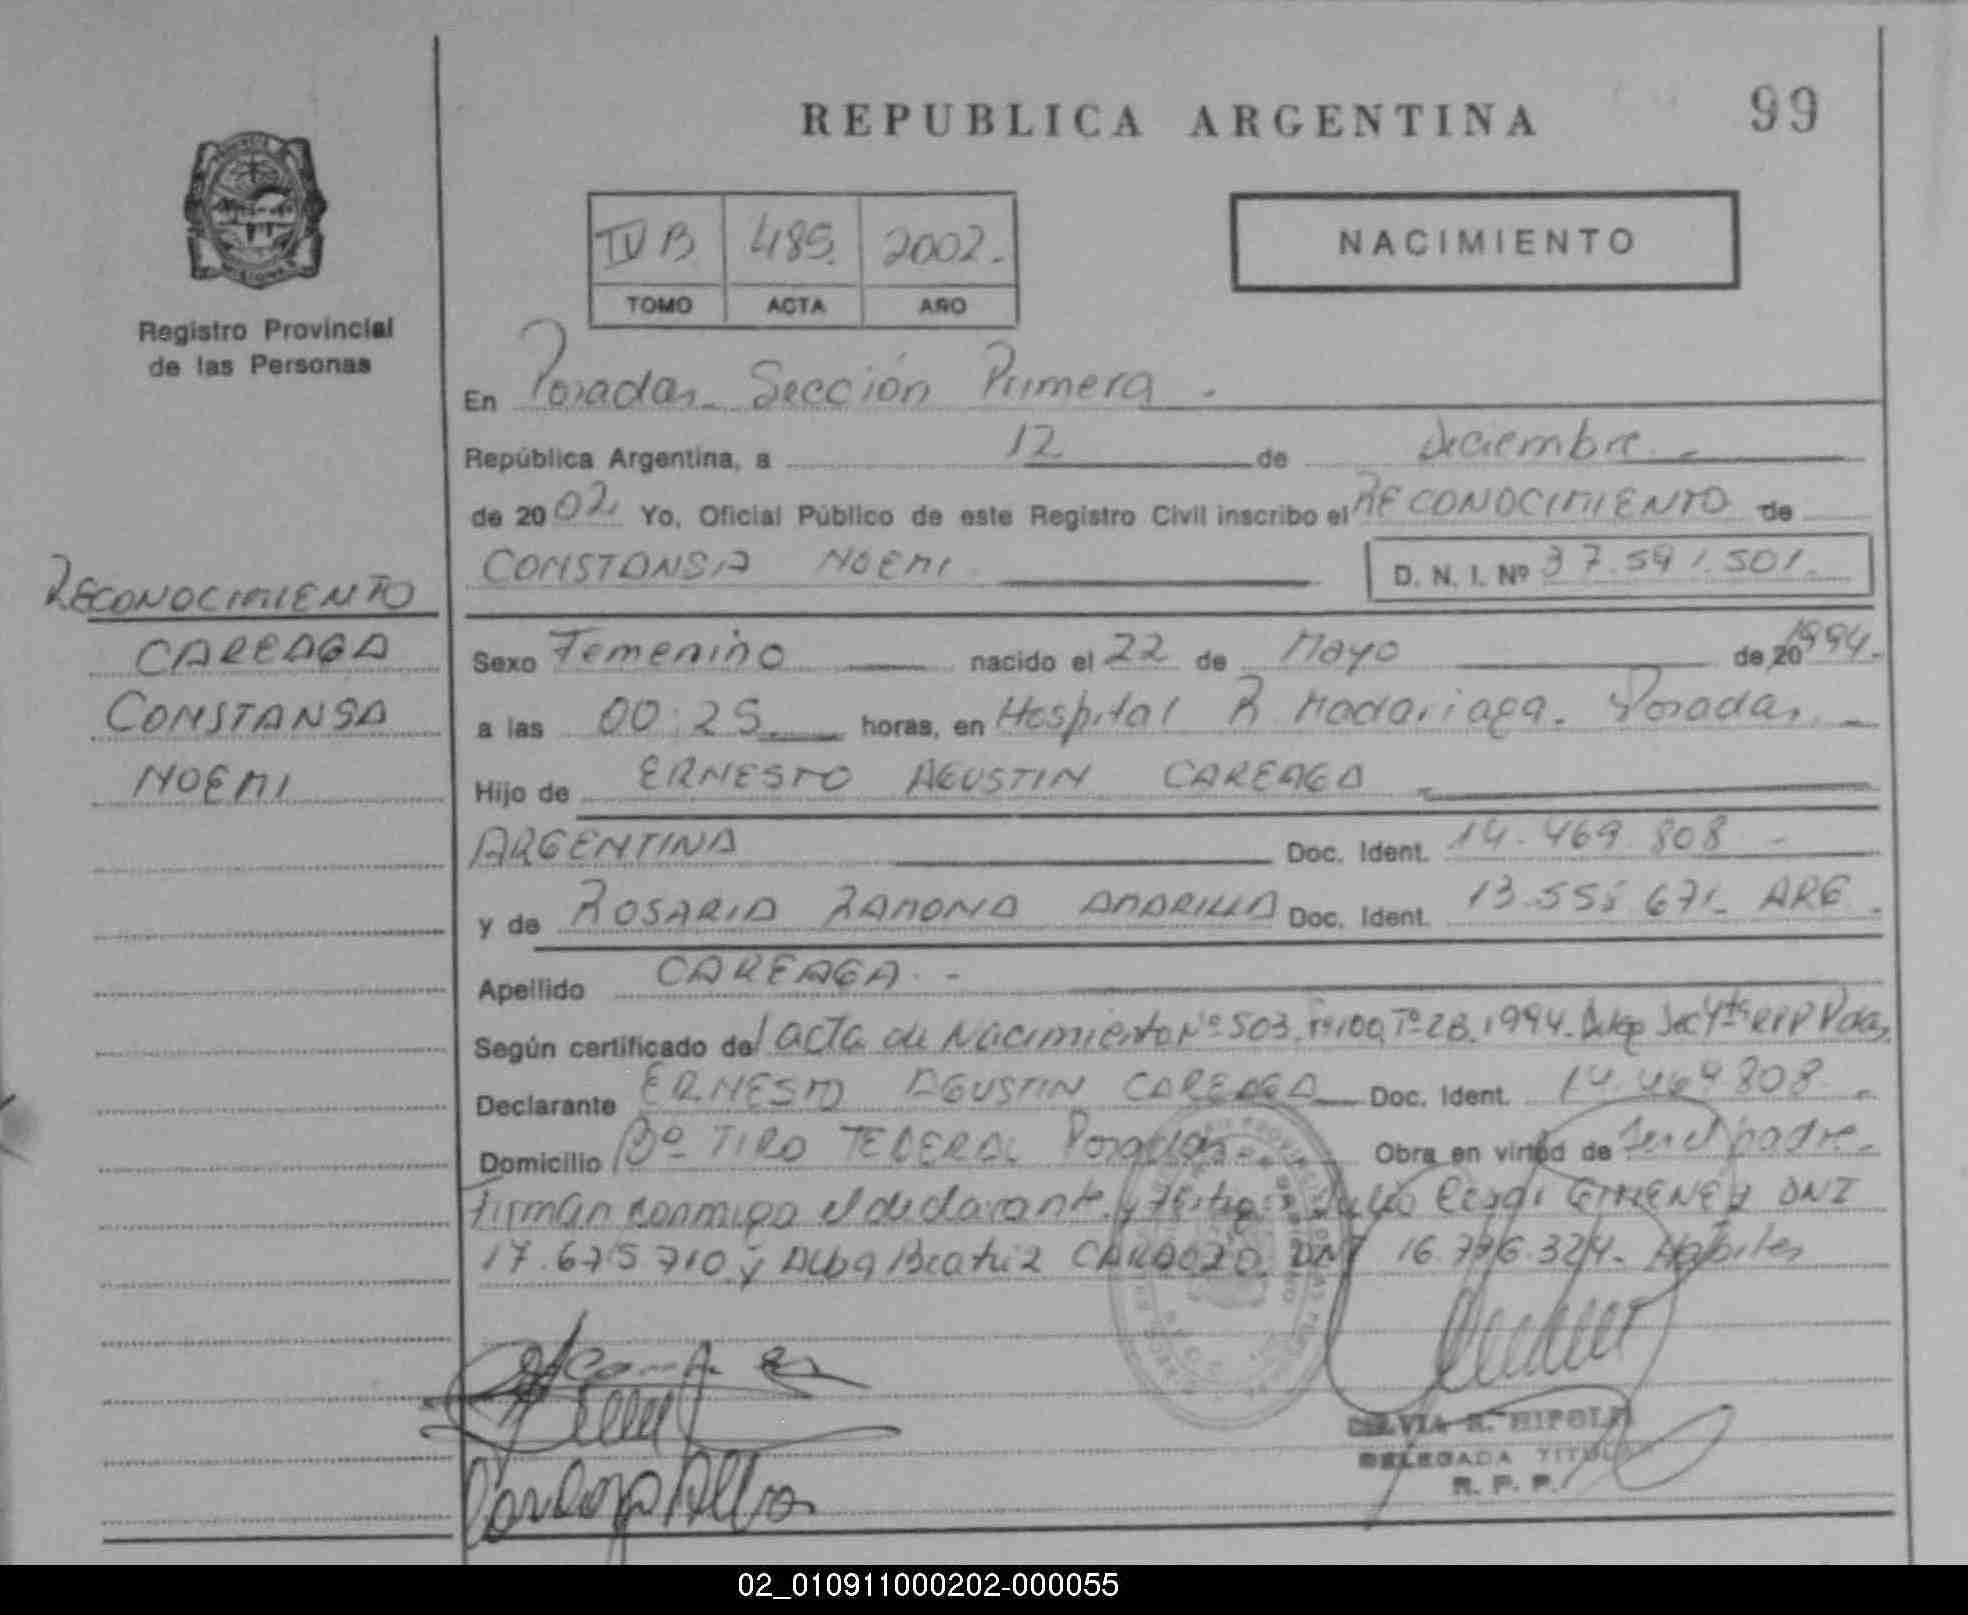 REPUBLICA ARGENTINA
99
Registro Provincial
de las Personas
IV B 485. 2002.
TOMO ACTA AÑO
NACIMIENTO
En Posadas Sección Primera.
República Argentina, a 12 de Diciembre.-
de 2002 Yo, Oficial Público de este Registro Civil inscribo el RECONOCIMIENTO de
CONSTANSA NOEMI D. N. I. Nº 37.591.501.
RECONOCIMIENTO
CAREAGA
CONSTANSA
NOEMI
Sexo Femenino nacido el 22 de Mayo de 20 1994.-
a las 00:25 horas, en Hospital R Madariaga. Posadas
Hijo de ERNESTO AGUSTIN CAREAGA
ARGENTINA Doc. Ident. 14.469.808 -
y de ROSARIA RAMONA AMARILLA Doc. Ident. 13.555.671- ARG.
Apellido CAREAGA.-
Según certificado del acta de Nacimiento Nº 503. Fº100, Tº2B. 1994. Deleg Sec 4ta RPP Pdas.
Declarante ERNESTO AGUSTIN CAREAGA Doc. Ident. 14.469.808 -
Domicilio Bº TIRO FEDERAL Posadas.- Obra en virtud de Ser el padre.-
Firman conmigo el declarante y testigos GIMENEZ DNI
17.675.710 y Alba Beatriz CARDOZO DNI 16.776.324. Hábiles
Cardozo Alba
SILVIA R. HIPOLI
DELEGADA TITULAR
R. P. P.
02_010911000202-000055